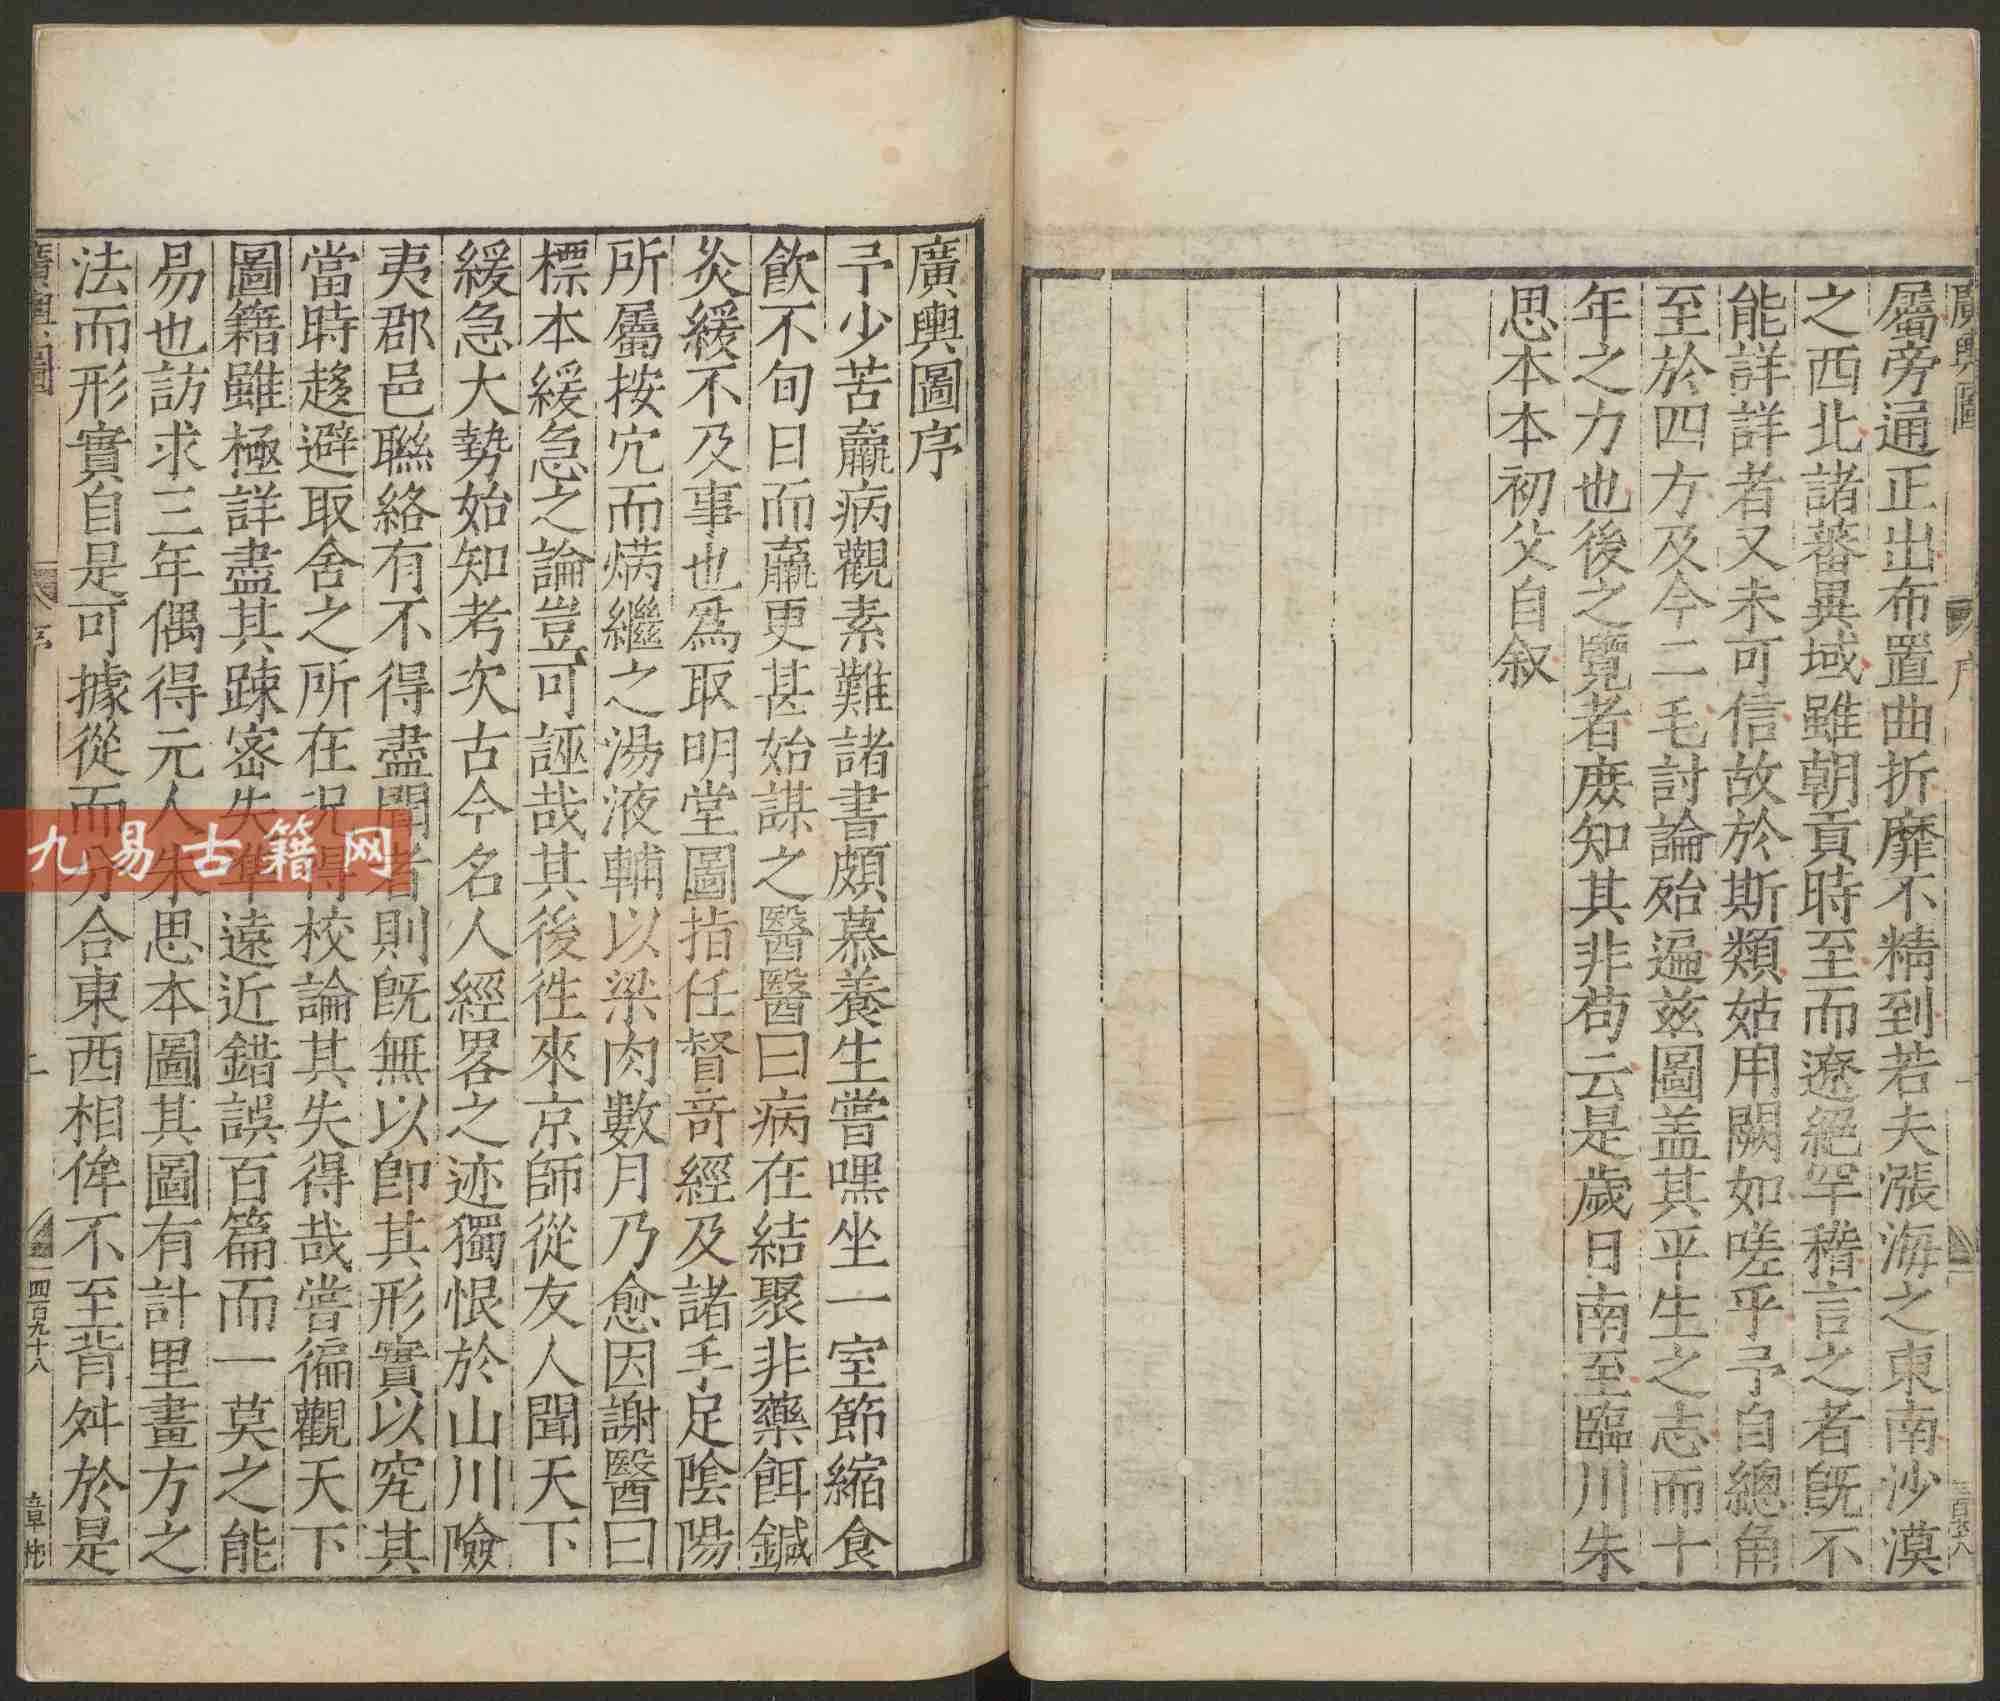 廣輿圖
序
屬旁通正出布置曲折靡不精到若夫漲海之東南沙漠
之西北諸蕃異域雖朝貢時至而遼絕罕稽言之者旣不
能詳詳者又未可信故於斯類姑用闕如嗟乎予自總角
至於四方及今二毛討論殆遍兹圖盖其平生之志而十
年之力也後之覽者庶知其非苟云是歲日南至臨川朱
思本本初父自叙
廣輿圖序
予少苦羸病觀素難諸書頗慕養生嘗嘿坐一室節縮食
飲不旬日而羸更甚始謀之醫醫曰病在結聚非藥餌鍼
灸緩不及事也爲取明堂圖指任督奇經及諸手足陰陽
所屬按穴而焫繼之湯液輔以梁肉數月乃愈因謝醫曰
標本緩急之論豈可誣哉其後徃來京師從友人聞天下
緩急大勢始知考次古今名人經畧之迹獨恨於山川險
夷郡邑聯絡有不得盡聞者則旣無以卽其形實以究其
當時趍避取舍之所在况得校論其失得哉嘗徧觀天下
圖籍雖極詳盡其踈密失準遠近錯誤百篇而一莫之能
易也訪求三年偶得元人朱思本圖其圖有計里畫方之
法而形實自是可據從而分合東西相侔不至背舛於是
廣輿圖
序
四百九十八
九易古籍网